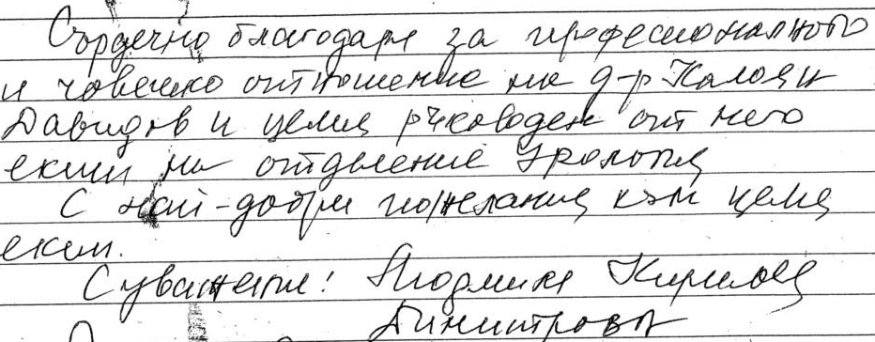 Сърдечно благодаря за професионалното
и човешко отношение на д-р Калоян
Давидов и целия ръководен от него
екип на отделение Урология
С най-добри пожелания към целия
екип.
С уважение: Людмила Кирилова
Димитрова